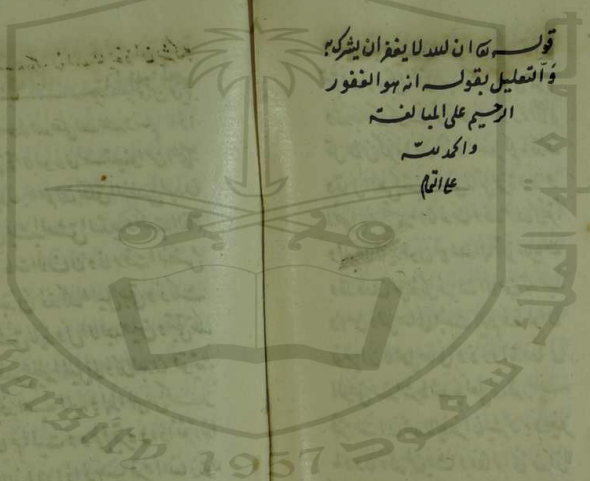 قوله تعا ان لله لا يغفر ان يشرك به
وَالتعليل بقوله انه هو الغفور
الرحيم على المبالغة
والحمد للّه
على التمام
University
1957